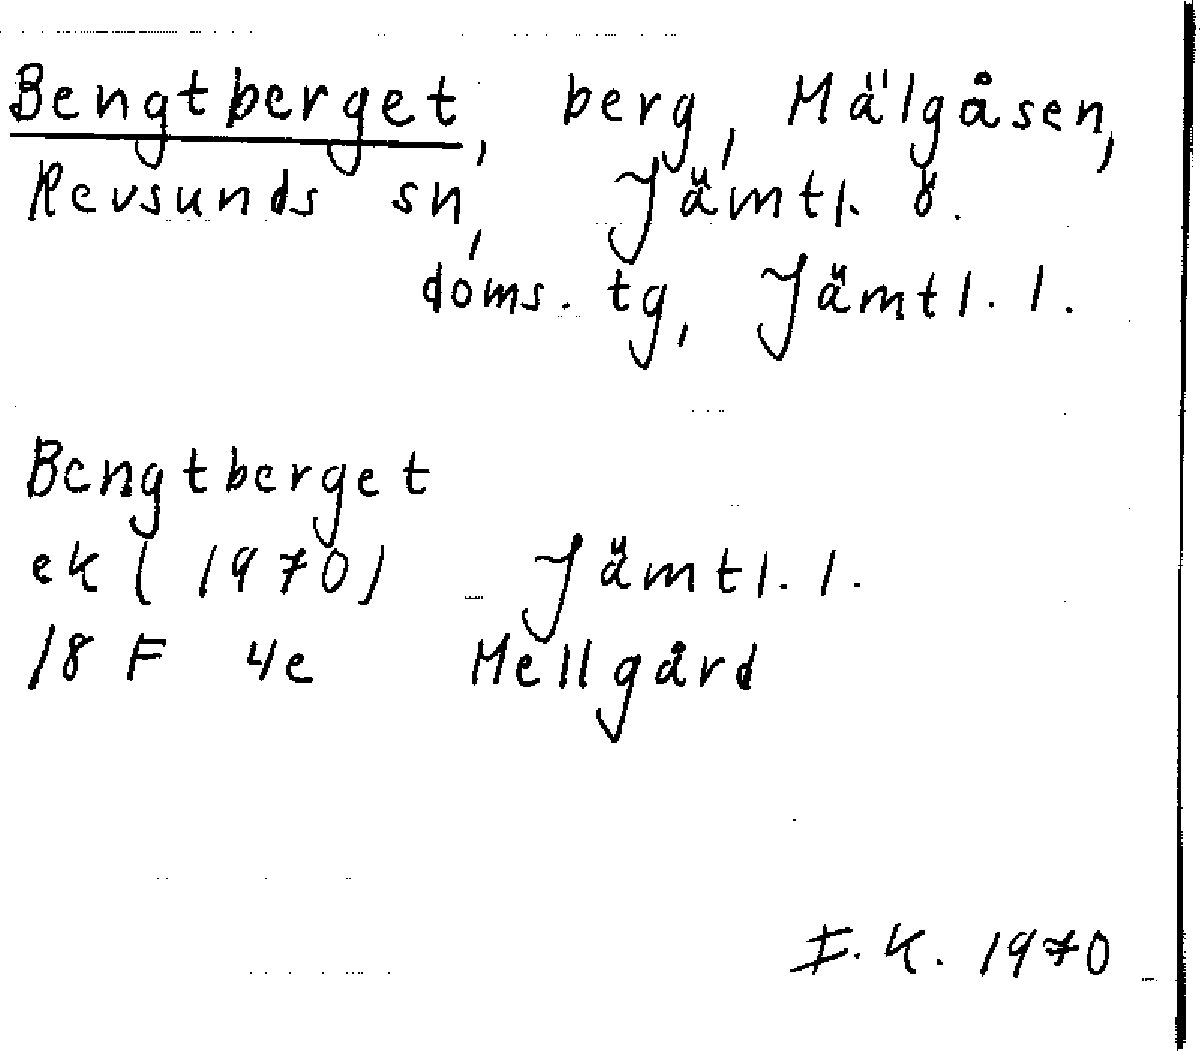 Bengtberget, berg, Mälgåsen,
Revsunds sn, Jämtl. ö.
doms. tg, Jämtl. l.
Bengtberget
ek (1970) Jämtl. l.
18 F 4e Mellgård
I. K. 1970